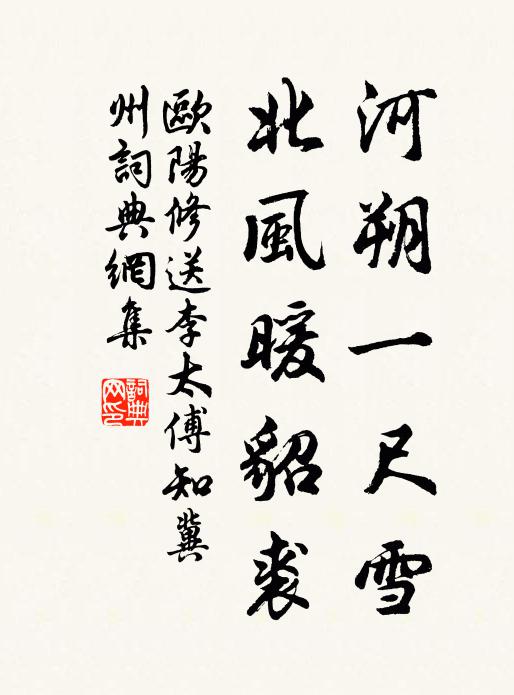 河朔一尺雪
北風暖貂裘
歐陽修送李太傅知冀
州詞典網集
詞典
网印